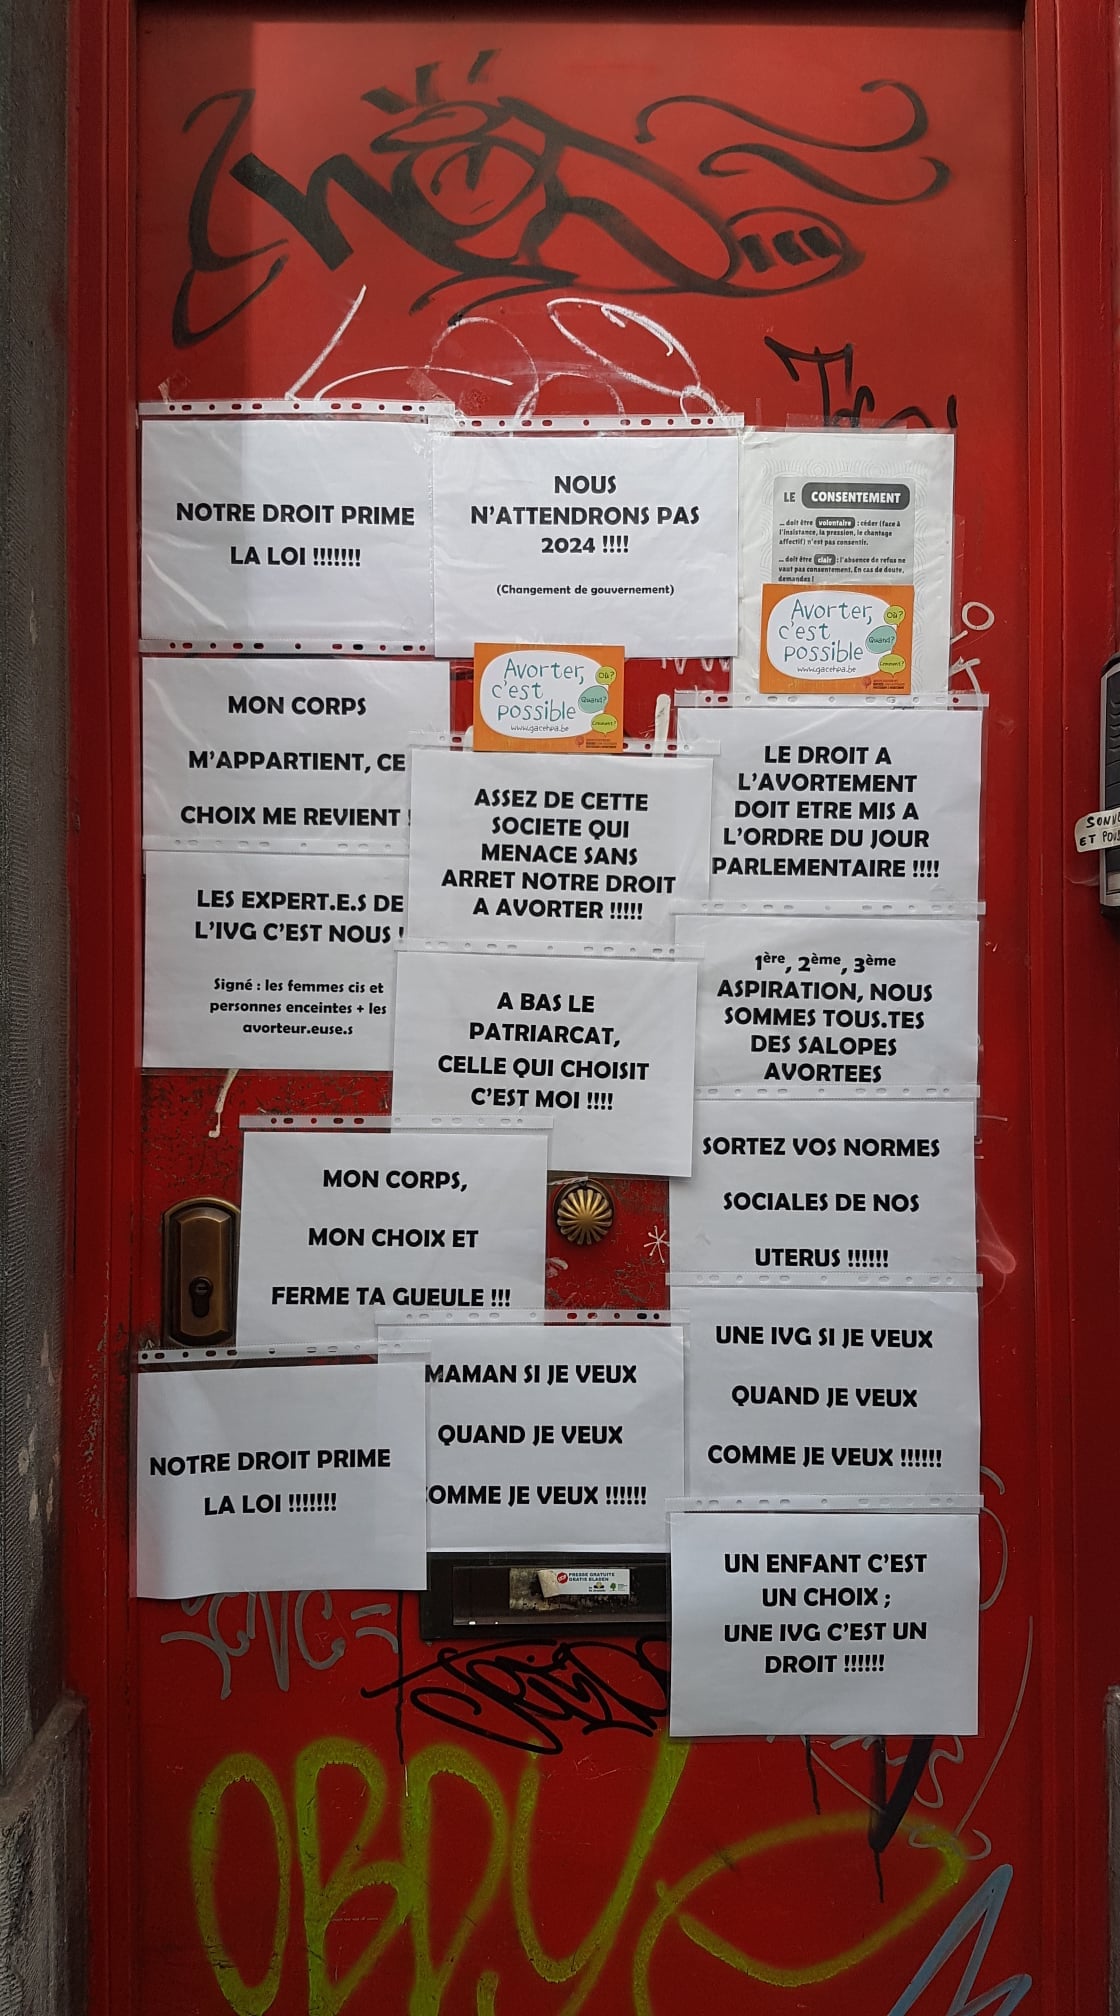 NOTRE DROIT PRIME
LA LOI !!!!!!!
NOUS
N'ATTENDRONS PAS
2024 !!!!
(Changement de gouvernement)
LE CONSENTEMENT
... doit être volontaire : céder (face à
l'insistance, la pression, le chantage
affectif) n'est pas consentir.
... doit être clair : l'absence de refus ne
vaut pas consentement. En cas de doute,
demandez !
Avorter,
c'est
possible
Où?
Quand?
Comment?
www.gacehpa.be
MON CORPS
M'APPARTIENT, CE
CHOIX ME REVIENT !
Avorter,
c'est
possible
Où?
Quand?
Comment?
www.gacehpa.be
LES EXPERT.E.S DE
L'IVG C'EST NOUS !
Signé : les femmes cis et
personnes enceintes + les
avorteur.euse.s
ASSEZ DE CETTE
SOCIETE QUI
MENACE SANS
ARRET NOTRE DROIT
A AVORTER !!!!!
LE DROIT A
L'AVORTEMENT
DOIT ETRE MIS A
L'ORDRE DU JOUR
PARLEMENTAIRE !!!!
A BAS LE
PATRIARCAT,
CELLE QUI CHOISIT
C'EST MOI !!!!
1ère, 2ème, 3ème
ASPIRATION, NOUS
SOMMES TOUS.TES
DES SALOPES
AVORTEES
MON CORPS,
MON CHOIX ET
FERME TA GUEULE !!!
SORTEZ VOS NORMES
SOCIALES DE NOS
UTERUS !!!!!!
NOTRE DROIT PRIME
LA LOI !!!!!!!
MAMAN SI JE VEUX
QUAND JE VEUX
COMME JE VEUX !!!!!!
UNE IVG SI JE VEUX
QUAND JE VEUX
COMME JE VEUX !!!!!!
STOP
PRESSE GRATUITE
GRATIS BLADEN
UN ENFANT C'EST
UN CHOIX ;
UNE IVG C'EST UN
DROIT !!!!!!
ET